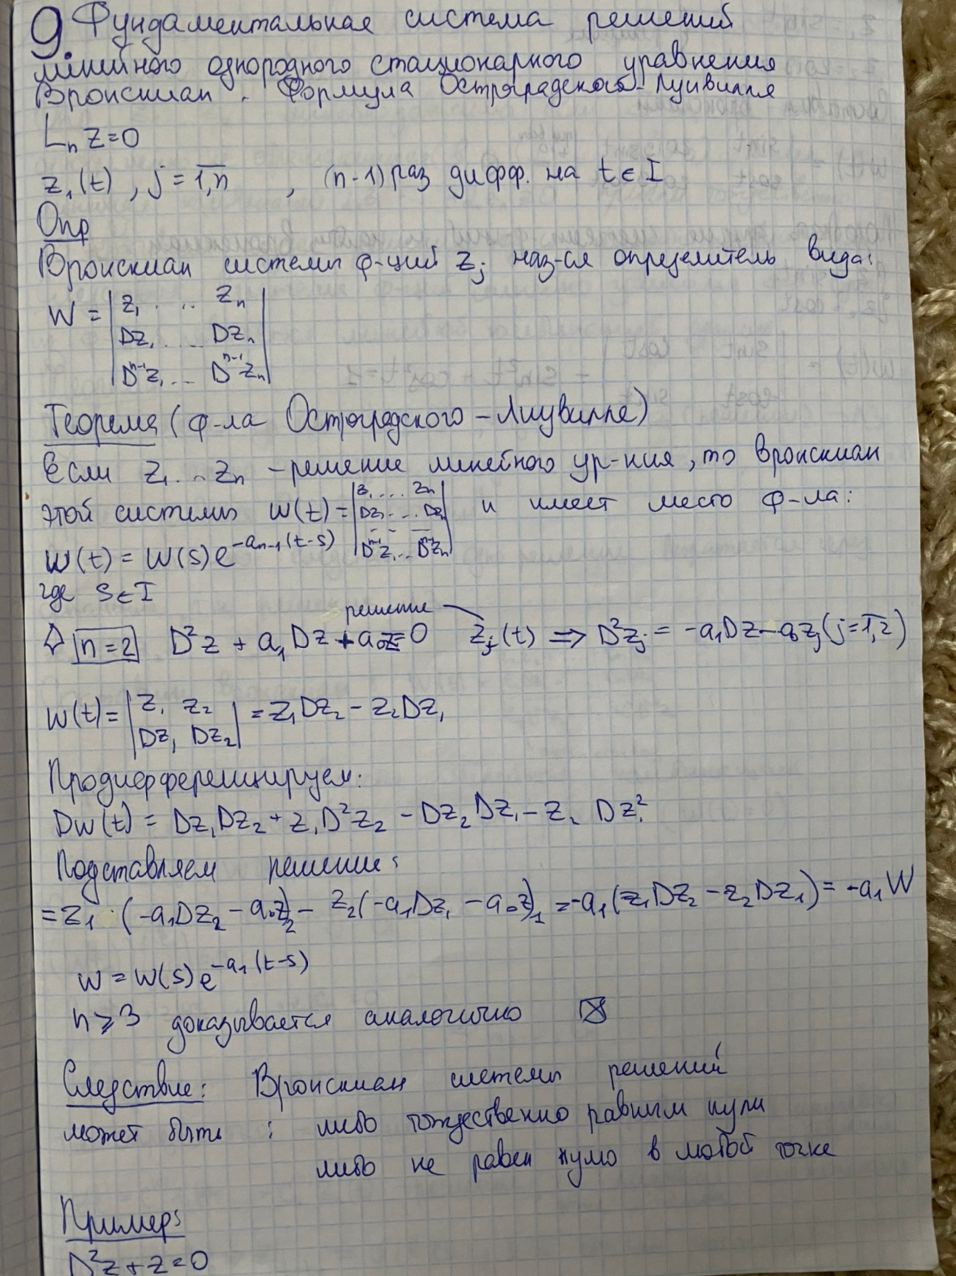 9. Фундаментальная система решений
линейного однородного стационарного уравнения
Вронскиан. Формула Остроградского-Луивилля
LₙZ=0
z₁(t), j=1,n , (n-1) раз дифф. на t∈I
Опр
Вронскиан системы ф-ций Zⱼ наз-ся определитель вида:
W = | z₁ ... zₙ |
| Dz₁ ... Dzₙ |
| Dⁿ⁻¹z₁ ... Dⁿ⁻¹zₙ |
Теорема (ф-ла Остроградского-Лиувилле)
Если Z₁...Zₙ - решение линейного ур-ния, то вронскиан
этой системы W(t) = | z₁ ... zₙ | и имеет место ф-ла:
| Dz₁ ... Dzₙ |
| Dⁿ⁻¹z₁ ... Dⁿ⁻¹zₙ |
W(t) = W(s)e^(-aₙ₋₁(t-s))
где s∈I
решение
n=2 D²z + a₁Dz + a₀z=0 zⱼ(t) ⇒ D²zⱼ = -a₁Dz-a₀zⱼ (j=1,2)
W(t) = | z₁ z₂ | = z₁Dz₂ - z₂Dz₁
| Dz₁ Dz₂ |
Продифференцируем:
DW(t) = Dz₁Dz₂ + z₁D²z₂ - Dz₂Dz₁ - z₂ Dz₁²
Подставляем решение:
= z₁ · (-a₁Dz₂ - a₀z₂) - z₂(-a₁Dz₁ - a₀z)₁ = -a₁(z₁Dz₂ - z₂Dz₁) = -a₁W
W = W(s)e^(-a₁(t-s))
n≥3 доказывается аналогично
Следствие: Вронскиан системы решений
может быть: либо тождественно равным нули
либо не равен нулю в любой точке
Пример:
D²z+z=0